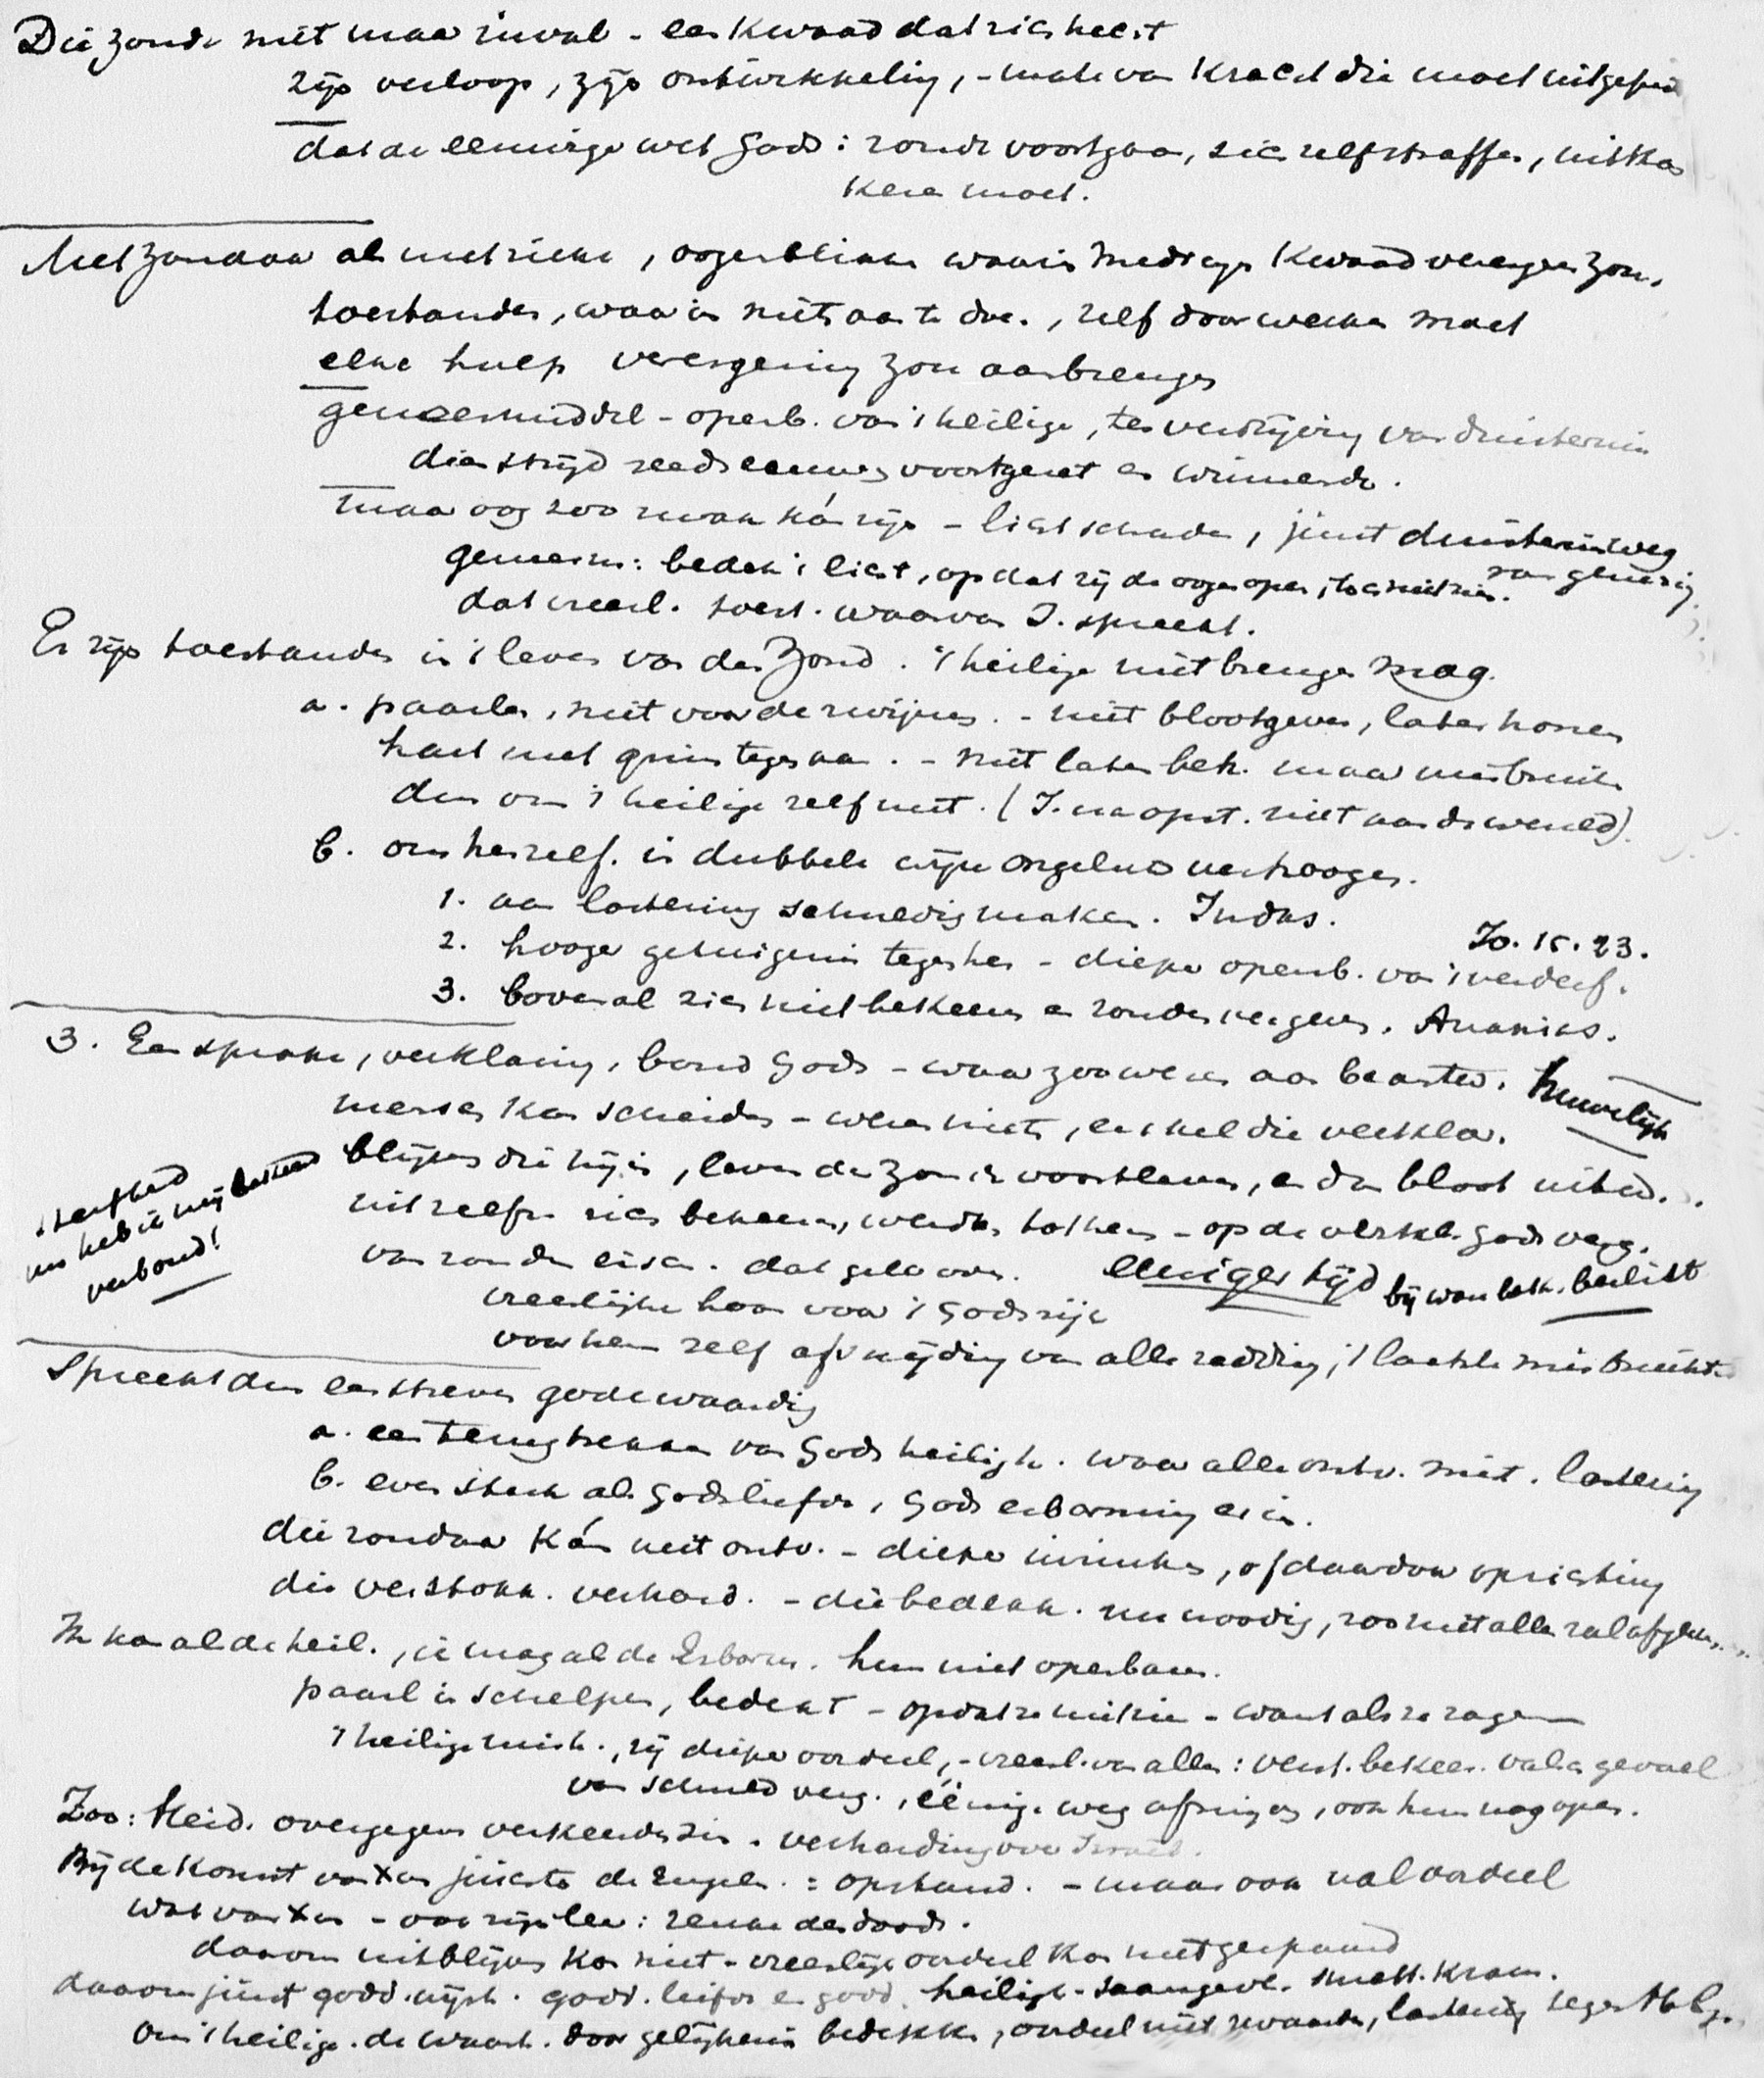 Die zonde niet maar inval - een kwaad dat zich heeft
zijn verloop, zijn ontwikkeling, - mate van kracht die moet uitgeput
dat de eeuwige wet Gods: zonde voortgaan, zich zelf straffen, uitkan
keren moet.
Met zondaar als met zieke, oogenblikken waarin medicijn kwaad verergeren zou.
toestanden, waarin niets aan te doen, zelf doorwerken moet
elke hulp verergering zou aanbrengen
geneesmiddel - openb. van 't heilige, ter verdrijving van duisternis
dien strijd reeds eeuwen voortgezet en winnende.
maar oog zoo zwak kán zijn - licht schaden, juist duisternis weg van genezing
genezen: bedek 't licht, opdat zij de oogen open, toch niet zien.
dat vreesl. toest. waarvan J. spreekt.
Er zijn toestanden in 't leven van den Zond. 't heilige niet brengen mag.
a. paarlen, niet voor de zwijnen. - niet blootgeven, laten honen
hart met grim tegen aan. - niet laten bek. maar misbruik
dus om 't heilige zelf niet. (J. na opst. niet aan de wereld).
b. om henzelf. in dubbele wijze ongeluk verhoogen.
1. aan lastering schuldig maken. Judas.
2. hooger getuigenis tegen hen - dieper openb. van 't verderf. Jo. 15. 23.
3. bovenal zich niet bekeeren en zonden vergeven. Ananias.
3. Een sprake, verklaring, bond Gods - waar zoo weer aan beantw. huwelijk
mensen kan scheiden - weer niets, enkel die verklar.
blijven die hij is, leven de zonde voortleven, en dan bloot uitw.
uitzelfde zich bekeeren, werden tot hen - op de verkl. Gods verg.
van zonden eisch. dat geloven. eeuwiger tijd bij ware bek. beslist
sterfbed
nu heb ik mij bekeerd
verbond!
vreeslijke hoon voor 't Godsrijk
voor hem zelf afsnijding van alle redding, 't laatste misbruikt
Spreekt dus een streven gode waardig
a. een terugtrekken van Gods heiligh. waar alle ontv. niet. lastering
b. even sterk als Gods liefde, Gods erbarming er in.
die zondaar kán niet ontv. - dieper inzinken, of daardoor oprichting
die verstokk. verhard. - die bedekk. nu noodig, zoo niet alles zal afgleden
Ik kan al de heil., ik mag al de Erbarm. hun niet openbaren.
paarl in schelpen, bedekt - opdat ze niet zien - want als ze zagen
't heilige misb., zij dieper oordeel, - vreesl. van alles: verst. bekeer. valsch gevoel
van schuld verg., éénige weg afsnijden, ook hun nog open.
Zoo: Heid. overgegeven verkeerden zin. verharding over Israël.
Bij de komst van Xus juichte de Engelen: opstand. - maar ook val oordeel
was van Xus - voor zijn leer: reuke des doods.
daarom uitblijven kan niet - vreeslijk oordeel kan niet gespaard
daarom juist godd. wijsh. godd. liefde en godd. heiligh. saamgevl. smelt. kroon.
om 't heilige. de waarh. door gelijkenis bedekken, oordeel niet zwaarder, lastering tegen H. G.